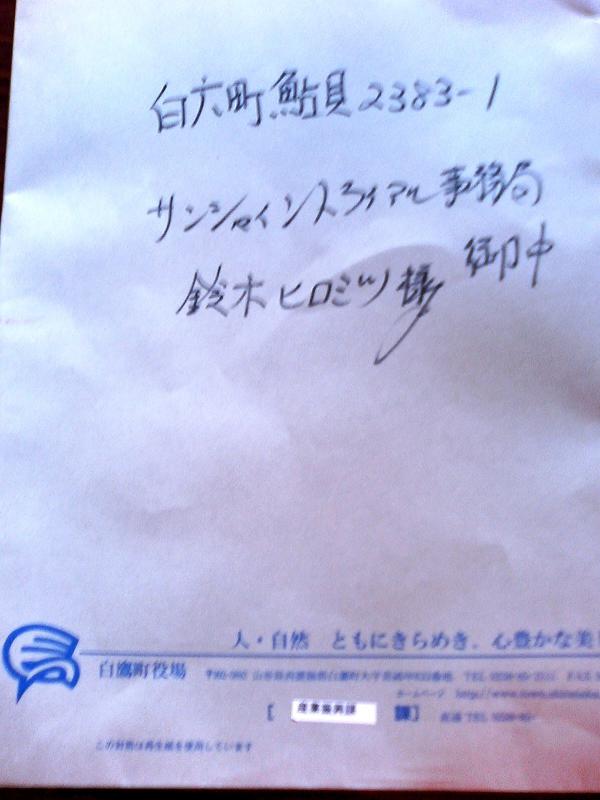 白六町鮎貝2383-1
サンシャイントライアル事務局
御中
鈴木ヒロミツ様
人・自然 ともにきらめき、心豊かな美
白鷹町役場
山形県西置賜郡白鷹町大字荒砥甲833番地 TEL
ホームページ http://www.town.shirataka
[ 産業振興課 課] 直通 TEL 0238-85-
この封筒は再生紙を使用しています